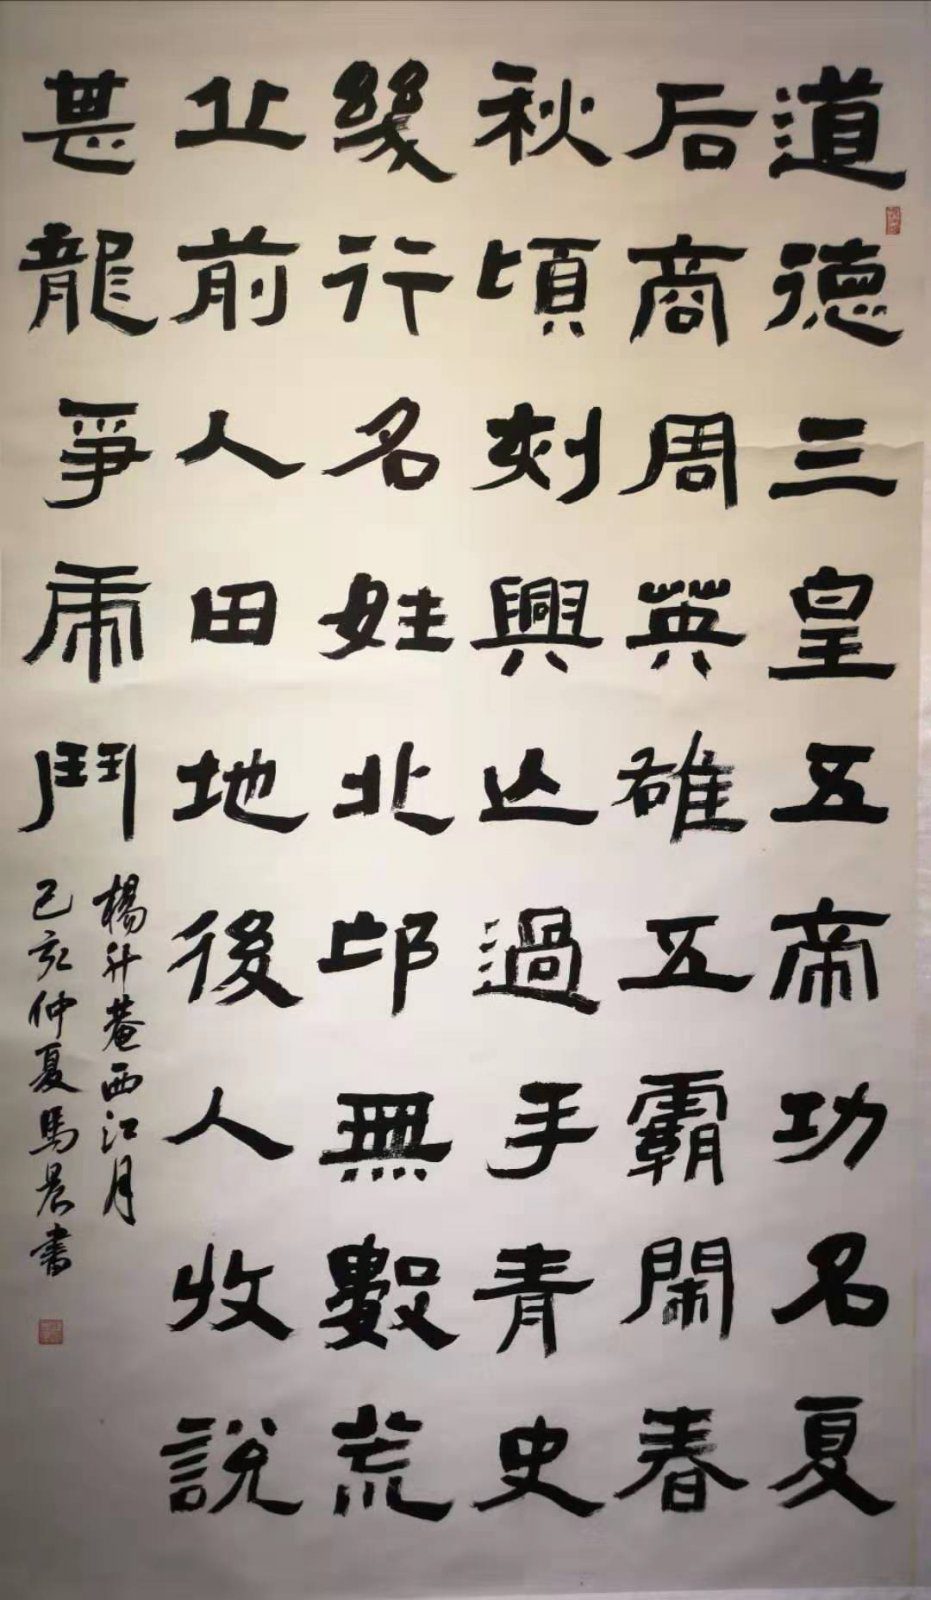 道德三皇五帝功名夏
后商周英雄五霸閙春
秋頃刻興亡過手青史
幾行名姓北邙無數荒
丘前人田地後人收說
甚龍爭虎鬥
楊升菴西江月
己亥仲夏馬晨書